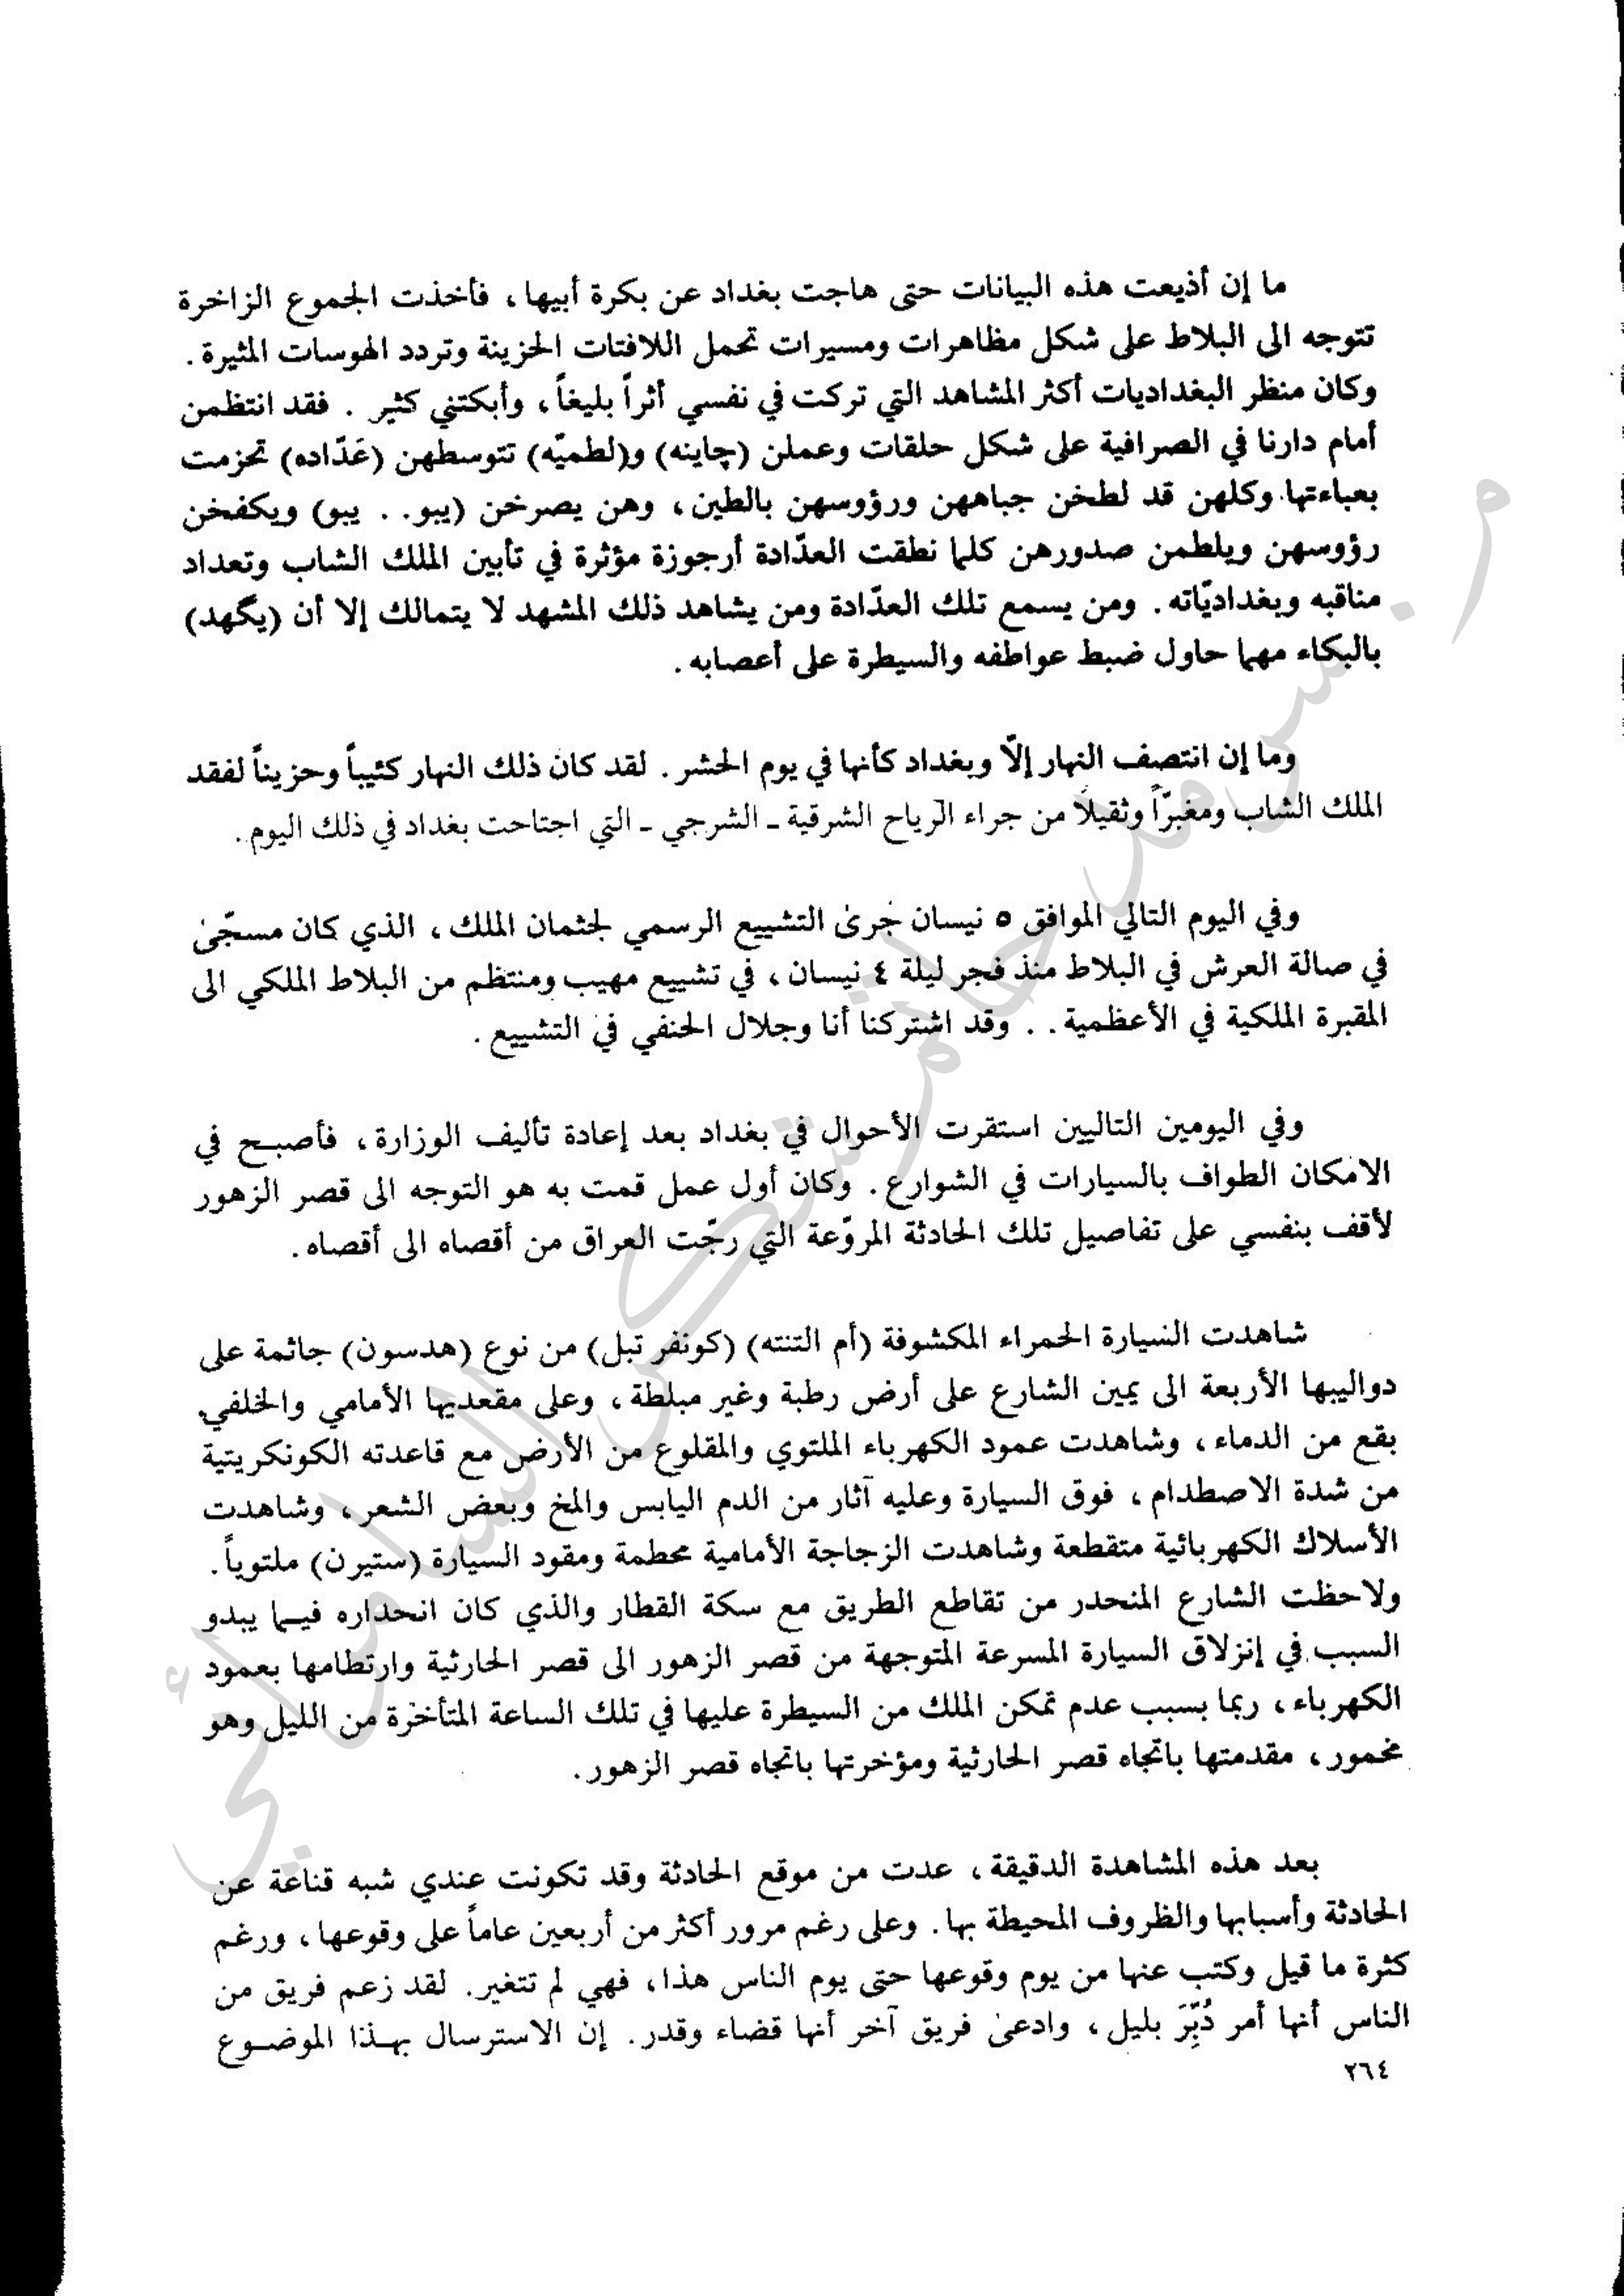 ما إن أذيعت هذه البيانات حتى هاجت بغداد عن بكرة أبيها، فأخذت الجموع الزاخرة
تتوجه الى البلاط على شكل مظاهرات ومسيرات تحمل اللافتات الحزينة وتردد الهوسات المثيرة.
وكان منظر البغداديات أكثر المشاهد التي تركت في نفسي أثراً بليغاً، وأبكتني كثير . فقد انتظمن
أمام دارنا في الصرافية على شكل حلقات وعملن (چاينه) و(لطميّه) تتوسطهن (عَدّاده) تحزمت
بعباءتها وكلهن قد لطخن جباههن ورؤوسهن بالطين، وهن يصرخن (يبو. . يبو) ويكفخن
رؤوسهن ويلطمن صدورهن كلما نطقت العدّادة أرجوزة مؤثرة في تأبين الملك الشاب وتعداد
مناقبه وبغداديّاته. ومن يسمع تلك العدّادة ومن يشاهد ذلك المشهد لا يتمالك إلا أن (يگهد)
بالبكاء مهما حاول ضبط عواطفه والسيطرة على أعصابه.
وما إن انتصف النهار إلّا وبغداد كأنها في يوم الحشر. لقد كان ذلك النهار كئيباً وحزيناً لفقد
الملك الشاب ومغبرّاً وثقيلاً من جراء الرياح الشرقية ـ الشرجي ـ التي اجتاحت بغداد في ذلك اليوم.
وفي اليوم التالي الموافق ٥ نيسان جرى التشييع الرسمي لجثمان الملك، الذي كان مسجّى
في صالة العرش في البلاط منذ فجر ليلة ٤ نيسان، في تشييع مهيب ومنتظم من البلاط الملكي الى
المقبرة الملكية في الأعظمية. . وقد اشتركنا أنا وجلال الحنفي في التشييع.
وفي اليومين التاليين استقرت الأحوال في بغداد بعد إعادة تأليف الوزارة، فأصبح في
الامكان الطواف بالسيارات في الشوارع. وكان أول عمل قمت به هو التوجه الى قصر الزهور
لأقف بنفسي على تفاصيل تلك الحادثة المروّعة التي رجّت العراق من أقصاه الى أقصاه.
شاهدت السيارة الحمراء المكشوفة (أم التنته) (كونفر تبل) من نوع (هدسون) جاثمة على
دواليبها الأربعة الى يمين الشارع على أرض رطبة وغير مبلطة، وعلى مقعديها الأمامي والخلفي
بقع من الدماء، وشاهدت عمود الكهرباء الملتوي والمقلوع من الأرض مع قاعدته الكونكريتية
من شدة الاصطدام، فوق السيارة وعليه آثار من الدم اليابس والمخ وبعض الشعر، وشاهدت
الأسلاك الكهربائية متقطعة وشاهدت الزجاجة الأمامية محطمة ومقود السيارة (ستيرن) ملتوياً.
ولاحظت الشارع المنحدر من تقاطع الطريق مع سكة القطار والذي كان انحداره فيما يبدو
السبب في إنزلاق السيارة المسرعة المتوجهة من قصر الزهور الى قصر الحارثية وارتطامها بعمود
الكهرباء، ربما بسبب عدم تمكن الملك من السيطرة عليها في تلك الساعة المتأخرة من الليل وهو
مخمور، مقدمتها باتجاه قصر الحارثية ومؤخرتها باتجاه قصر الزهور.
بعد هذه المشاهدة الدقيقة، عدت من موقع الحادثة وقد تكونت عندي شبه قناعة عن
الحادثة وأسبابها والظروف المحيطة بها. وعلى رغم مرور أكثر من أربعين عاماً على وقوعها، ورغم
كثرة ما قيل وكتب عنها من يوم وقوعها حتى يوم الناس هذا، فهي لم تتغير. لقد زعم فريق من
الناس أنها أمر دُبِّرَ بليل، وادعى فريق آخر أنها قضاء وقدر. إن الاسترسال بهذا الموضوع
٢٦٤